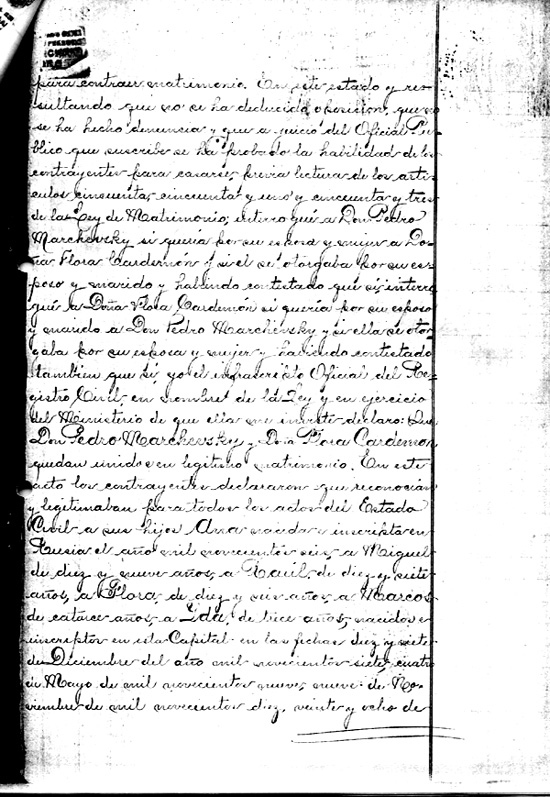 para contraer matrimonio. En este estado y re-
sultando que no se ha deducido oposicion, que no
se ha hecho denuncia y que a juicio del Oficial Pú-
blico que suscribe se ha probado la habilidad de los
contrayentes para casarse, previa lectura de los arti-
culos cincuenta, cincuenta y uno y cincuenta y tres
de la Ley de Matrimonio; interrogué a Don Pedro
Marchevsky si queria por su esposa y mujer a Do-
ña Flora Cardemón y si él se otorgaba por su es-
poso y marido y habiendo contestado que si; interro-
gué a Doña Flora Cardemón si queria por su esposo
y marido a Don Pedro Marchevsky y si ella se otor-
gaba por su esposa y mujer y habiendo contestado
tambien que si, yo el infrascripto Oficial del Re-
gistro Civil, en nombre de la Ley y en ejercicio
del Ministerio de que ella me inviste declaro: Que
Don Pedro Marchevsky y Doña Flora Cardemón
quedan unidos en legitimo matrimonio. En este
acto los contrayentes declararon que reconocian
y legitimaban para todos los actos del Estado
Civil a sus hijos Ana nacida e inscripta en
Rusia el año mil novecientos seis, a Miguel
de diez y nueve años, a Raúl, de diez y siete
años, a Flora, de diez y seis años, a Marcos
de catorce años, a Ida, de doce años, nacidos e
inscriptos en esta Capital en las fechas diez y siete
de Diciembre del año mil novecientos siete, cuatro
de Mayo de mil novecientos nueve, nueve de No-
viembre de mil novecientos diez, veinte y ocho de